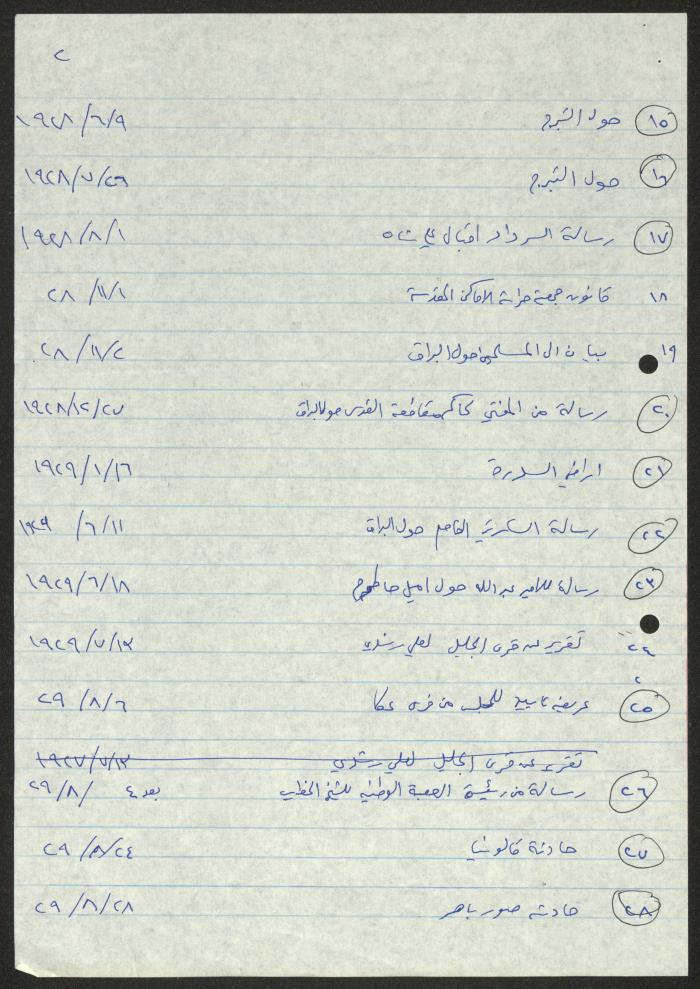 ٢
١٥ حول التبرج ١٩٢٨/٦/٩
١٦ حول التبرج ١٩٢٨/٧/٢٩
١٧ رسالة السردار اقبال علي شاه ١٩٢٨/٨/١
١٨ قانون جمعية حراسة الاماكن المقدسة ٢٨/١١/١
١٩ بيان الى المسلمين حول البراق ٢٨/١١/٢
٢٠ رسالة من المفتي لحاكم مقاطعة القدس حول البراق ١٩٢٨/١٢/٢٧
٢١ اراضي السدرة ١٩٢٩/١/١٦
٢٢ رسالة السكرتير العام حول البراق ١٩٢٩/٦/١١
٢٣ رسالة للامير عبد الله حول ١٩٢٩/٦/١٨
٢٤ تقرير عن قرى الجليل لعلي رشدي ١٩٢٩/٧/١٣
٢
٢٥ عريضة تاييد للمجلس من قرى عكا ٢٩/٨/٦
تقرير عن قرى الجليل لعلي رشدي ١٩٢٧/٧/١٣
٢٦ رسالة من رئيسة العصبة الوطنية للشيخ الخطيب بعد ٤ /٢٩/٨
٢٧ حادثة قالونيا ٢٩/٨/٢٤
٢٨ حادثة صور باهر ٢٩/٨/٢٨